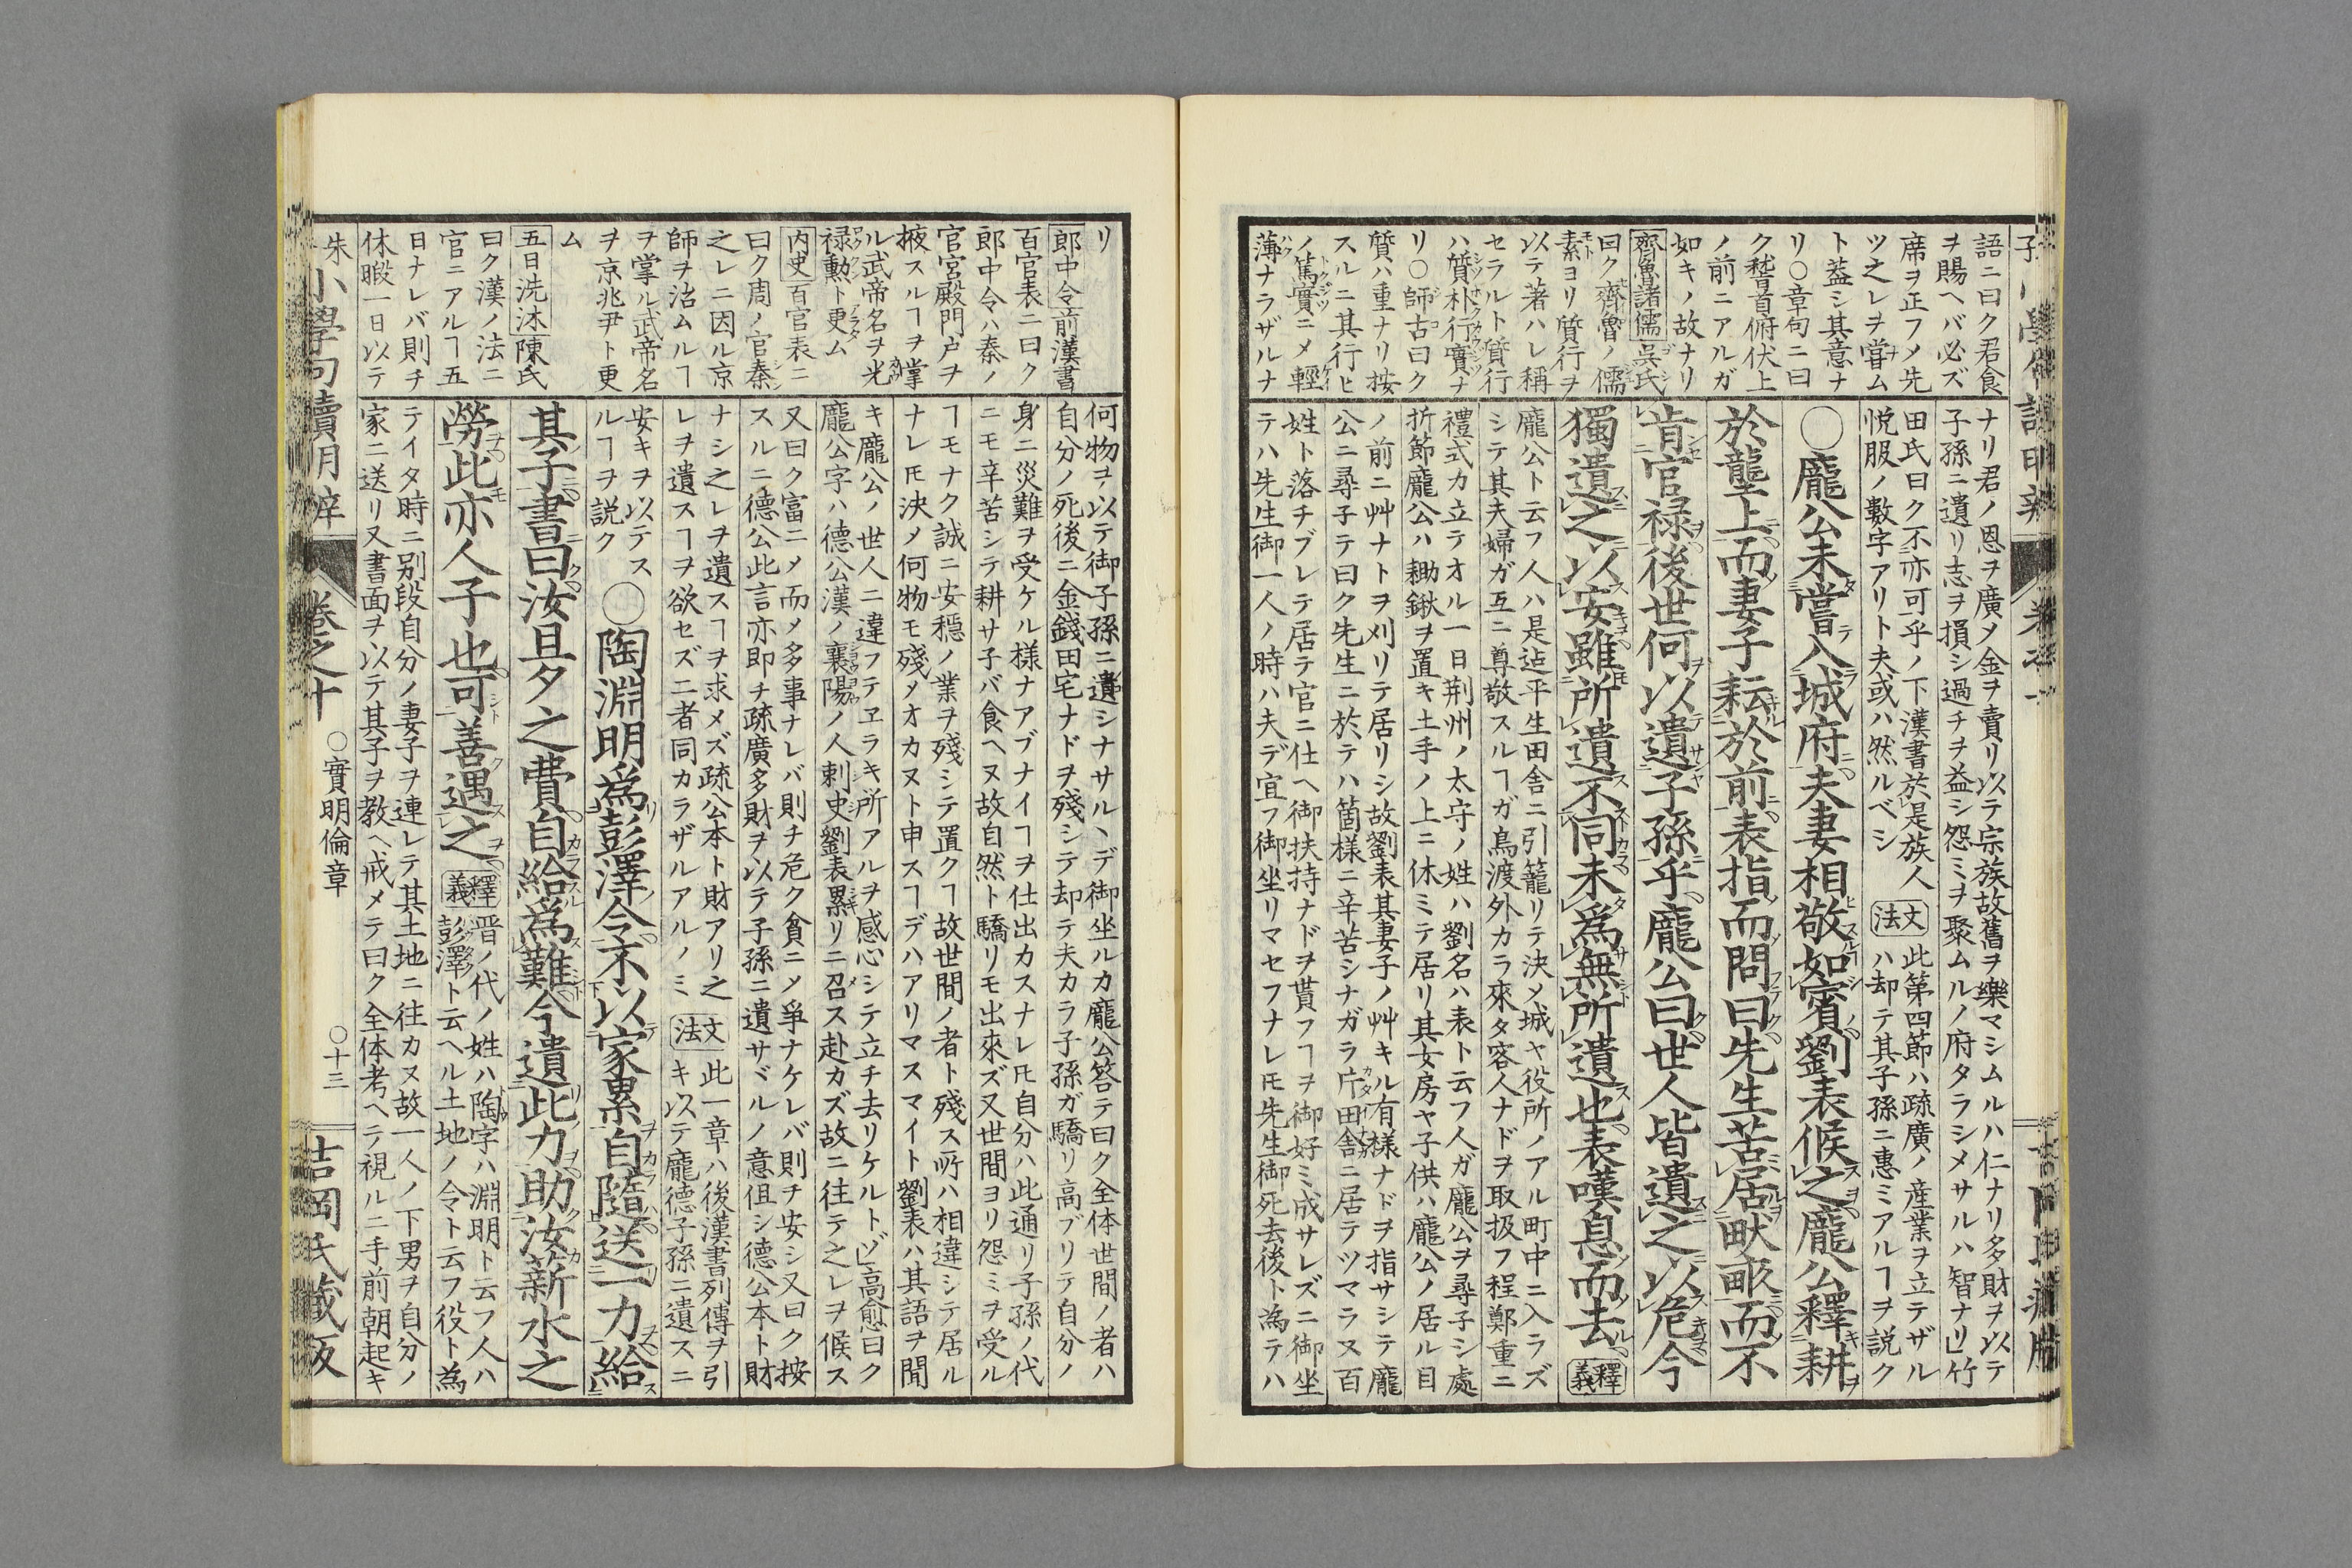 語ニ曰ク君食
ヲ賜ヘバ必ズ
席ヲ正フメ先
ツ之レヲ嘗ム
ト葢シ其意ナ
リ○章句ニ曰
ク嵆首俯伏上
ノ前ニアルガ
如キノ故ナリ
齊魯諸儒 呉氏
曰ク齊魯ノ儒
素ヨリ質行ヲ
以テ著ハレ稱
セラルト質行
ハ質朴行實ナ
リ○師古曰ク
質ハ重ナリ按
スルニ其行ヒ
ノ篤實ニメ輕
薄ナラザルナ
ナリ君ノ恩ヲ廣メ金ヲ賣リ以テ宗族故舊ヲ樂マシムルハ仁ナリ多財ヲ以テ
子孫ニ遺リ志ヲ損シ過チヲ益シ怨ミヲ聚ムルノ府タラシメサルハ智ナリ」竹
田氏曰ク不亦可乎ノ下漢書於是族人
悦服ノ數字アリト夫或ハ然ルベシ
文法 此第四節ハ疏廣ノ産業ヲ立テザル
ハ却テ其子孫ニ惠ミアルヿヲ説ク
○龐公未嘗入城府夫妻相敬如賓劉表候之龐公釋耕
於壟上而妻子耘於前表指而問曰先生苦居畎畝而不
肯官禄後世何以遺子孫乎龐公曰世人皆遺之以危今
獨遺之以安雖所遺不同未爲無所遺也表嘆息而去 釋義
龐公ト云フ人ハ是迠平生田舎ニ引籠リテ決メ城ヤ役所ノアル町中ニ入ラズ
シテ其夫婦ガ互ニ尊敬スルヿガ鳥渡外カラ來タ客人ナドヲ取扱フ程鄭重ニ
禮式カ立テオル一日荆州ノ太守ノ姓ハ劉名ハ表ト云フ人ガ龐公ヲ尋子シ處
折節龐公ハ耡鍬ヲ置キ土手ノ上ニ休ミテ居リ其女房ヤ子供ハ龐公ノ居ル目
ノ前ニ艸ナトヲ刈リテ居リシ故劉表其妻子ノ艸キル有様ナドヲ指サシテ龐
公ニ尋子テ曰ク先生ニ於テハ箇様ニ辛苦シナガラ片田舎ニ居テツマラヌ百
姓ト落チブレテ居テ官ニ仕ヘ御扶持ナドヲ貰フヿヲ御好ミ成サレズニ御坐
テハ先生御一人ノ時ハ夫デ宜フ御坐リマセフナレ𪜈先生御死去後ト為テハ
リ
郎中令 前漢書
百官表ニ曰ク
郎中令ハ秦ノ
官宮殿門戸ヲ
掖スルヿヲ掌
ル武帝名ヲ光
禄勳ト更ム
内史 百官表ニ
曰ク周ノ官秦
之レニ因ル京
師ヲ治ムルヿ
ヲ掌ル武帝名
ヲ京兆尹ト更
ム
五日洗沐 陳氏
曰ク漢ノ法ニ
官ニアルヿ五
日ナレバ則チ
休暇一日以テ
何物ヲ以テ御子孫ニ遺シナサルヽデ御坐ルカ龐公答テ曰ク全体世間ノ者ハ
自分ノ死後ニ金錢田宅ナドヲ殘シテ却テ夫カラ子孫ガ驕リ高ブリテ自分ノ
身ニ災難ヲ受ケル様ナアブナイヿヲ仕出カスナレ𪜈自分ハ此通リ子孫ノ代
ニモ辛苦シテ耕サ子バ食ヘヌ故自然ト驕リモ出來ズ又世間ヨリ怨ミヲ受ル
ヿモナク誠ニ安穩ノ業ヲ殘シテ置クヿ故世間ノ者ト殘ス所ハ相違シテ居ル
ナレ𪜈決メ何物モ殘メオカヌト申スヿデハアリマスマイト劉表ハ其語ヲ聞
キ龐公ノ世人ニ違フテヱラキ所アルヲ感心シテ立チ去リケルトゾ」高愈曰ク
龐公字ハ德公漢ノ襄陽ノ人刺史劉表累リニ召ス赴カズ故ニ往テ之レヲ候ス
又曰ク富ニメ而メ多事ナレバ則チ危ク貧ニメ爭ナケレバ則チ安シ又曰ク按
スルニ德公此言亦即チ疏廣多財ヲ以テ子孫ニ遺サヾルノ意但シ德公本ト財
ナシ之レヲ遺スヿヲ求メズ疏公本ト財アリ之
レヲ遺スヿヲ欲セズ二者同カラザルアルノミ
文法 此一章ハ後漢書列傳ヲ引
キ以テ龐德子孫ニ遺スニ
安キヲ以テス
ルヿヲ説ク
○陶淵明爲彭澤令不以家累自隨送一力給
其子書曰汝旦夕之費自給爲難今遣此力助汝薪水之
勞此亦人子也可善遇之 釋義 晋ノ代ノ姓ハ陶字ハ淵明ト云フ人ハ
彭澤ト云ヘル土地ノ令ト云フ役ト為
テイタ時ニ别段自分ノ妻子ヲ連レテ其土地ニ往カヌ故一人ノ下男ヲ自分ノ
家ニ送リ又書面ヲ以テ其子ヲ教ヘ戒メテ曰ク全体考ヘテ視ルニ手前朝起キ
朱
小學句讀明辨 卷之十 ○實明倫章 ○十三 吉岡氏藏版